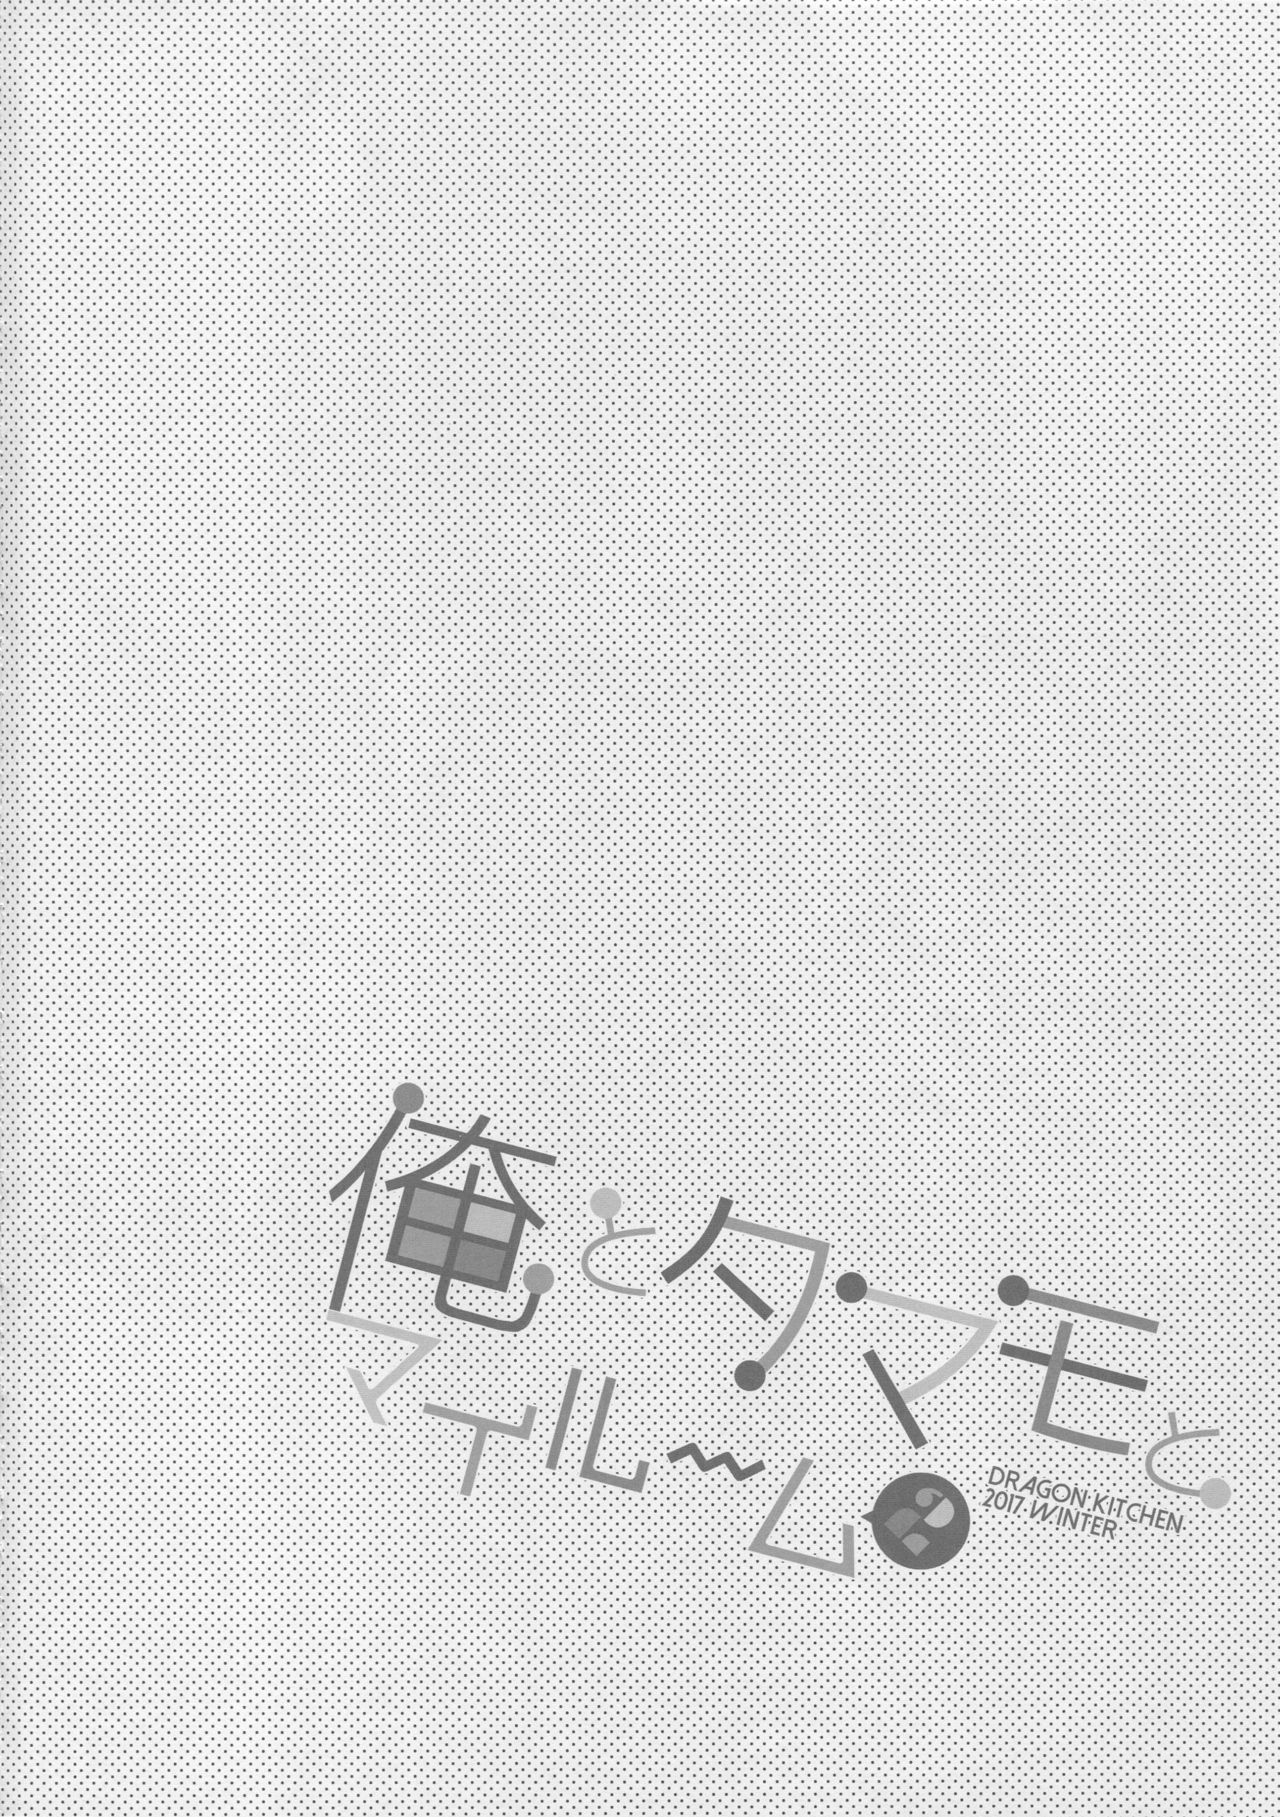 俺とタマモと
マイル〜ム
DRAGON KITCHEN
2017 WINTER